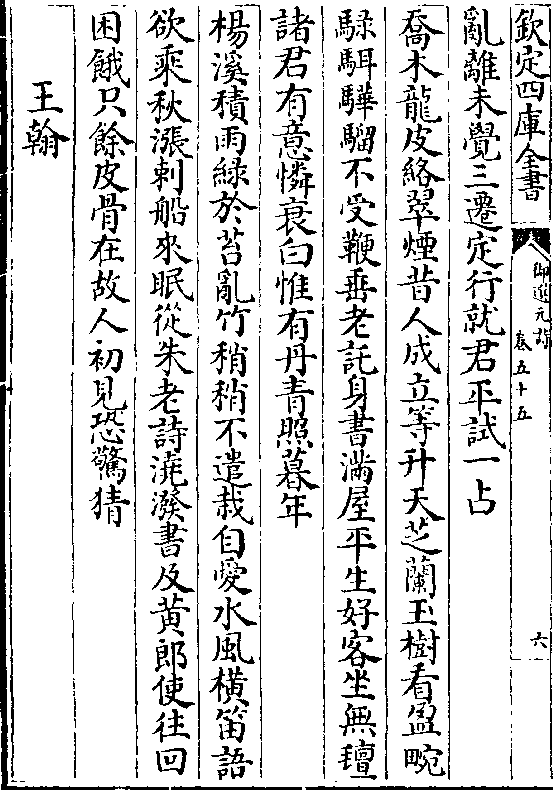 欽定四庫全書
御選元詩
卷五十五
六
亂離未覺三遷定行就君平試一占
喬木龍皮絡翠煙昔人成立等升天芝蘭玉樹看盈畹
騄駬驊騮不受鞭垂老託身書滿屋平生好客坐無氊
諸君有意憐衰白惟有丹青照暮年
楊溪積雨緑於苔亂竹稍稍不遣栽自愛水風橫笛語
欲乘秋漲刺船來眠從朱老詩澆潑書及黃郎使往回
困餓只餘皮骨在故人初見恐驚猜
王翰